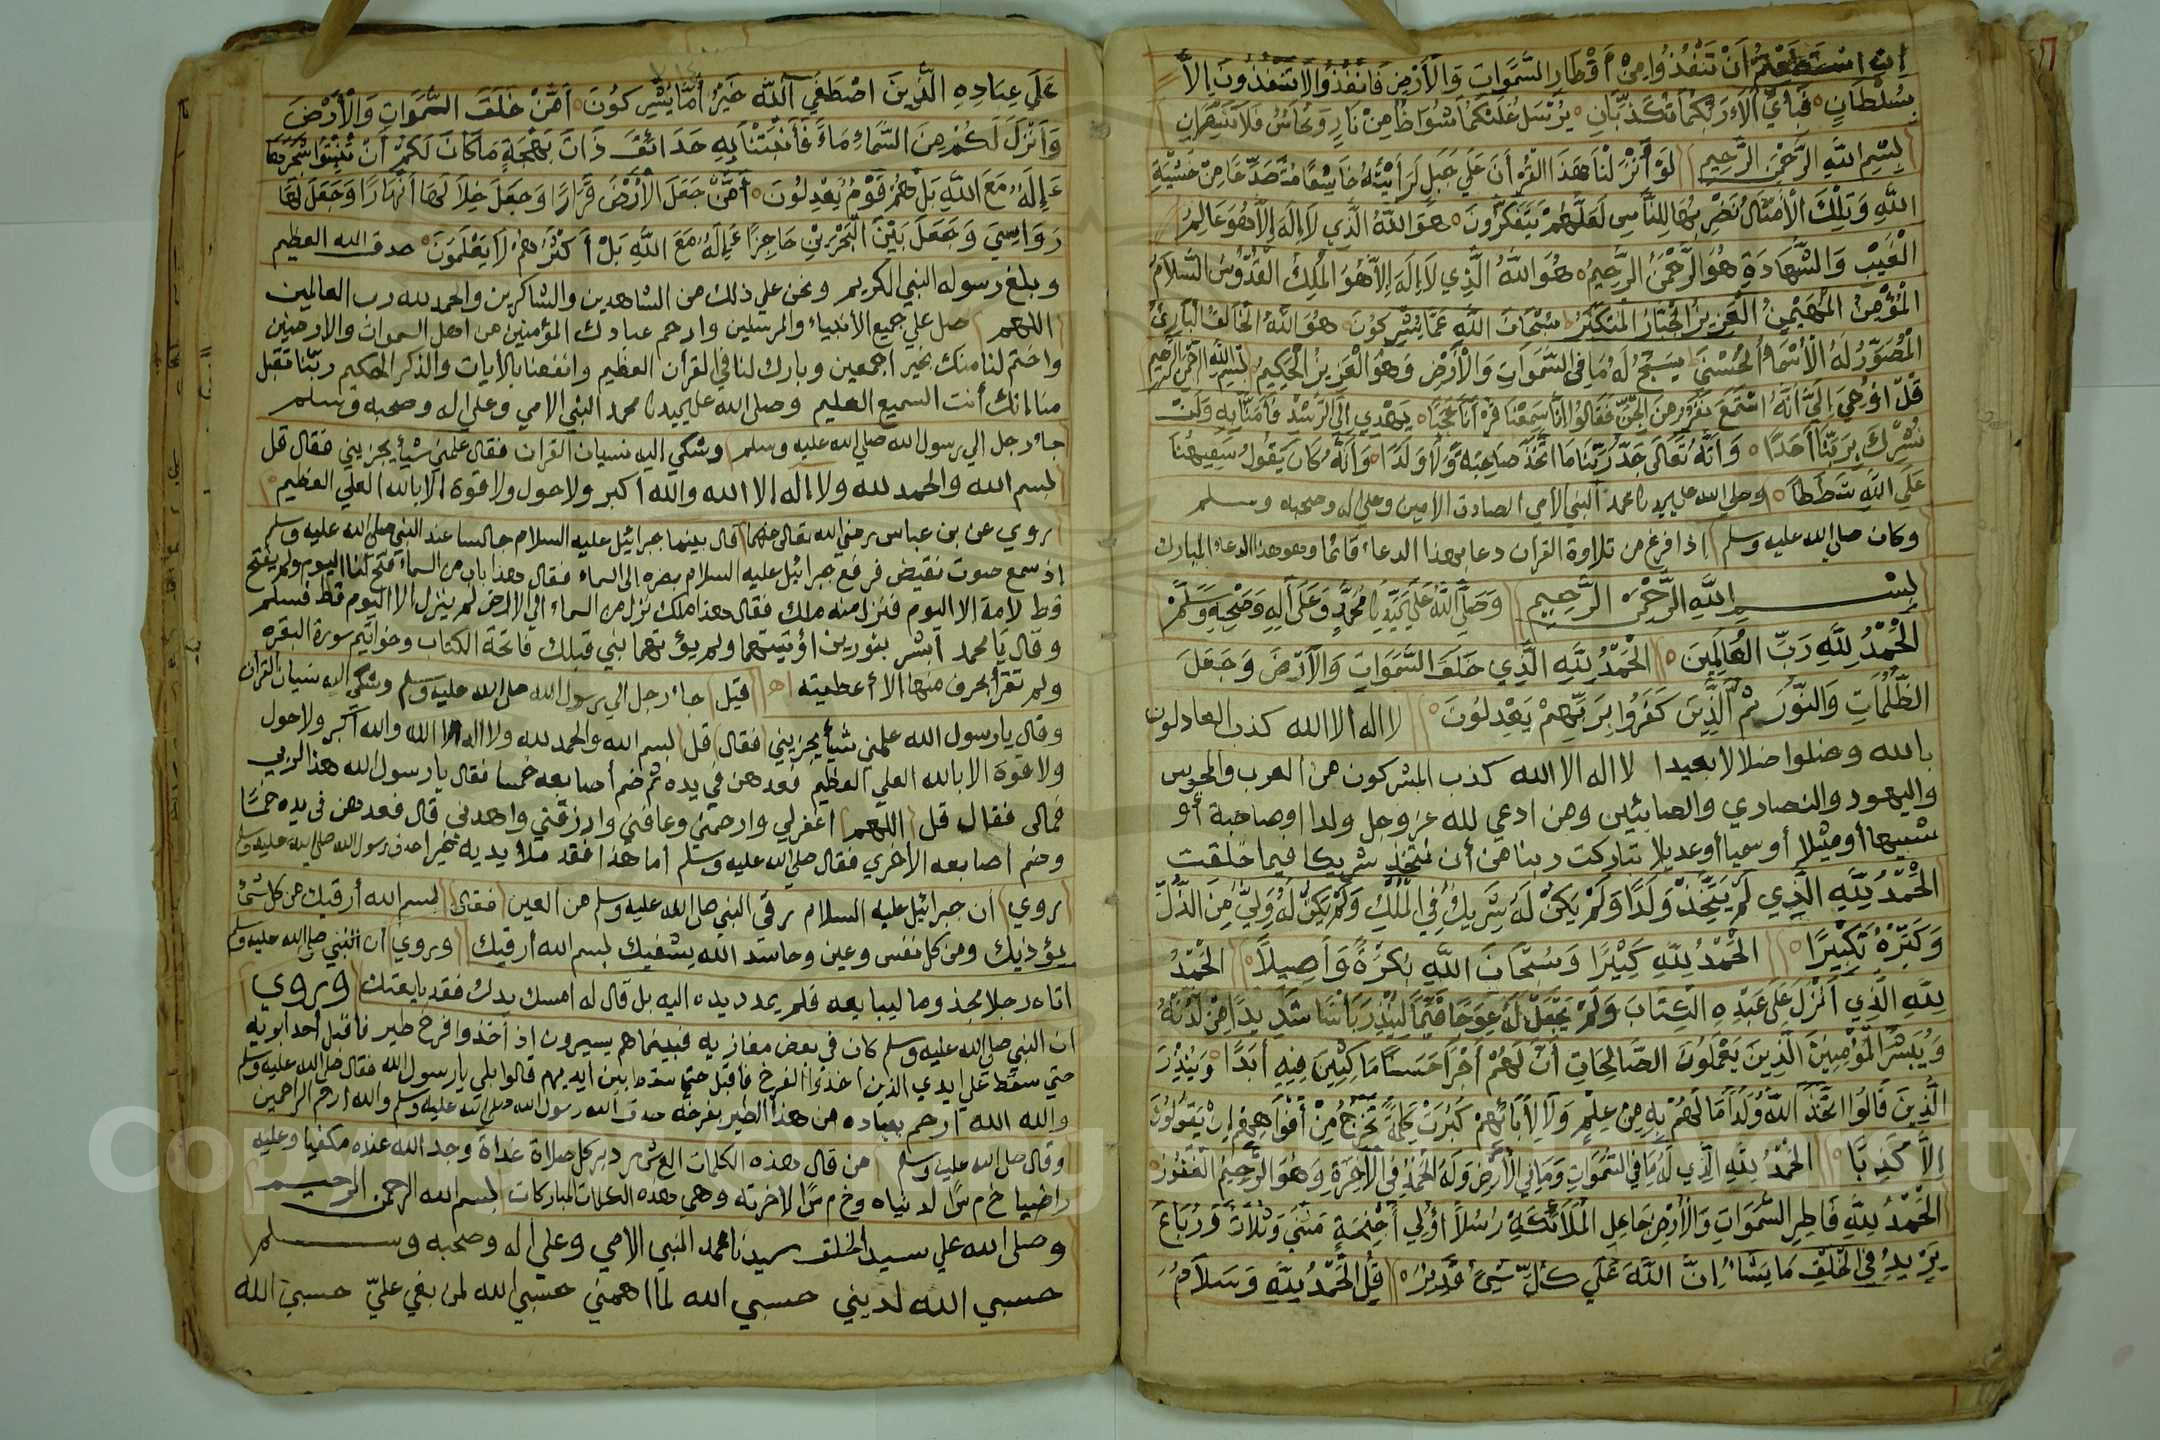 ان استطعتم أن تنفذوا من أقطار السموات والأرض فانفذوا لا تنفذون إلا
بسلطان فبأي آلاء ربكما تكذبان يرسل عليكما شواظ من نار ونحاس فلا تنتصران
بسم الله الرحمن الرحيم لو أنزلنا هذا القرآن على جبل لرأيته خاشعا متصدعا من خشية
الله وتلك الأمثال نضربها للناس لعلهم يتفكرون هو الله الذي لا إله إلا هو عالم
الغيب والشهادة هو الرحمن الرحيم هو الله الذي لا إله إلا هو الملك القدوس السلام
المؤمن المهيمن العزيز الجبار المتكبر سبحان الله عما يشركون هو الله الخالق البارئ
المصور له الأسماء الحسنى يسبح له ما في السموات والأرض وهو العزيز الحكيم بسم الله الرحمن الرحيم
قل أوحي إلي أنه استمع نفر من الجن فقالوا إنا سمعنا قرآنا عجبا يهدي إلى الرشد فآمنا به ولن
نشرك بربنا أحدا وأنه تعالى جد ربنا ما اتخذ صاحبة ولا ولدا وأنه كان يقول سفيهنا
على الله شططا وصلى الله على سيدنا محمد النبي الأمي الصادق الأمين وعلى آله وصحبه وسلم
وكان صلى الله عليه وسلم إذا فرغ من تلاوة القرآن دعا بهذا الدعاء قائما وهو هذا الدعاء المبارك
بسم الله الرحمن الرحيم وصلى الله على سيدنا محمد وعلى آله وصحبه وسلم
الحمد لله رب العالمين الحمد لله الذي خلق السموات والأرض وجعل
الظلمات والنور ثم الذين كفروا بربهم يعدلون لا اله الا الله كذب العادلون
بالله وضلوا ضلالا بعيدا لا اله الا الله كذب المشركون من العرب والمجوس
واليهود والنصاري والصابئين ومن ادعى لله عز وجل ولدا او صاحبة أو
شبيها أو مثيلا أو سميا أو عديلا تباركت ربنا من أن تتخذ شريكا فيما خلقت
الحمد لله الذي لم يتخذ ولدا ولم يكن له شريك في الملك ولم يكن له ولي من الذل
وكبره تكبيرا الحمد لله كبيرا وسبحان الله بكرة وأصيلا الحمد
لله الذي أنزل على عبده الكتاب ولم يجعل له عوجا قيما لينذر بأسا شديدا من لدنه
ويبشر المؤمنين الذين يعملون الصالحات أن لهم أجرا حسنا ماكثين فيه أبدا وينذر
الذين قالوا اتخذ الله ولدا ما لهم به من علم ولا لآبائهم كبرت كلمة تخرج من أفواههم إن يقولون
إلا كذبا الحمد لله الذي له ما في السموات وما في الأرض وله الحمد في الآخرة وهو الرحيم الغفور
الحمد لله فاطر السموات والأرض جاعل الملائكة رسلا أولي أجنحة مثنى وثلاث ورباع
يزيد في الخلق ما يشاء إن الله على كل شيء قدير قل الحمد لله وسلام
على عباده الذين اصطفي آلله خير أما يشركون أمن خلق السموات والأرض
وأنزل لكم من السماء ماء فأنبتنا به حدائق ذات بهجة ما كان لكم أن تنبتوا شجرها
ءإله مع الله بل هم قوم يعدلون أمن جعل الأرض قرارا وجعل خلالها أنهارا وجعل لها
رواسي وجعل بين البحرين حاجزا ءإله مع الله بل أكثرهم لا يعلمون صدق الله العظيم
وبلغ رسوله النبي الكريم ونحن علي ذلك من الشاهدين والشاكرين والحمد لله رب العالمين
اللهم صل علي جميع الأنبياء والمرسلين وارحم عبادك المؤمنين من اهل السموات والارضين
واختم لنا منك بخير أجمعين وبارك لنا في القرآن العظيم وانفعنا بالآيات والذكر الحكيم ربنا تقبل
منا انك أنت السميع العليم وصلى الله على سيدنا محمد النبي الامي وعلى اله وصحبه وسلم
جاء رجل الي رسول الله صلى الله عليه وسلم وشكي اليه نسيان القران فقال علمني شيأ يجزيني فقال قل
بسم الله والحمد لله ولا اله الا الله والله أكبر ولا حول ولا قوة الا بالله العلي العظيم
روي عن بن عباس رضي الله تعالى عنهما قال بينما جبرائيل عليه السلام جالسا عند النبي صلى الله عليه وسلم
إذ سمع صوت نقيض فرفع جبرائيل عليه السلام بصره الى السماء فقال هذا باب من السماء فتح لنا اليوم ولم يفتح
قط لامة الا اليوم فنزل منه ملك فقال هذا ملك نزل من السماء الي الارض لم ينزل الا اليوم قط فسلم
وقال يا محمد أبشر بنورين أؤتيتهما ولم يؤتهما نبي قبلك فاتحة الكتاب وخواتيم سورة البقره
ولم تقرأ بحرف منها الا أعطيته اهـ قيل جاء رجل الي رسول الله صلى الله عليه وسلم وشكي اليه نسيان القران
وقال يا رسول الله علمني شيأ يجزيني فقال قل بسم الله والحمد لله ولا اله الا الله والله أكبر ولا حول
ولا قوة الا بالله العلي العظيم فعدهن في يده ثم ضم أصابعه خمسا فقال يا رسول الله هذا لربي
فمالى فقال قل اللهم اغفر لي وارحمني وعافني وارزقني واهدني قال فعدهن في يده خمسا
وضم أصابعه الأخري فقال صلى الله عليه وسلم أما هذا فقد ملأ يديه خيرا صدق رسول الله صلى الله عليه وسلم
روي أن جبرائيل عليه السلام رقي النبي صلى الله عليه وسلم من العين فقال بسم الله أرقيك من كل شئ
يؤذيك ومن كل نفس وعين وحاسد الله يشفيك بسم الله أرقيك وروي أن النبي صلى الله عليه وسلم
اتاه رجلا مجذوما ليبايعه فلم يمدد يده اليه بل قال له امسك يدك فقد بايعتك وروي
ان النبي صلى الله عليه وسلم كان في بعض مغازيه فبينما هم يسيرون إذ أخذوا فرخ طير فاقبل أحد أبويه
حتي سقط علي ايدي الذين اخذوا الفرخ فاقبل حتى سقط بين ايديهم قالوا بلي يا رسول الله فقال صلى الله عليه وسلم
والله الله أرحم بعباده من هذا الطير بفرخه صدق الله رسول الله صلى الله عليه وسلم والله ارحم الراحمين
وقال صلى الله عليه وسلم من قال هذه الكلمات العشر دبر كل صلاة غداة وجد الله عنده مكفيا وعليه
راضيا خمسا لدنياه وخمسا لاخرته وهي هذه الكلمات المباركات بسم الله الرحمن الرحيم
وصلى الله علي سيد الخلق سيدنا محمد النبي الامي وعلي اله وصحبه وسلم
حسبي الله لديني حسبي الله لما اهمني حسبي الله لمن بغي عليّ حسبي الله